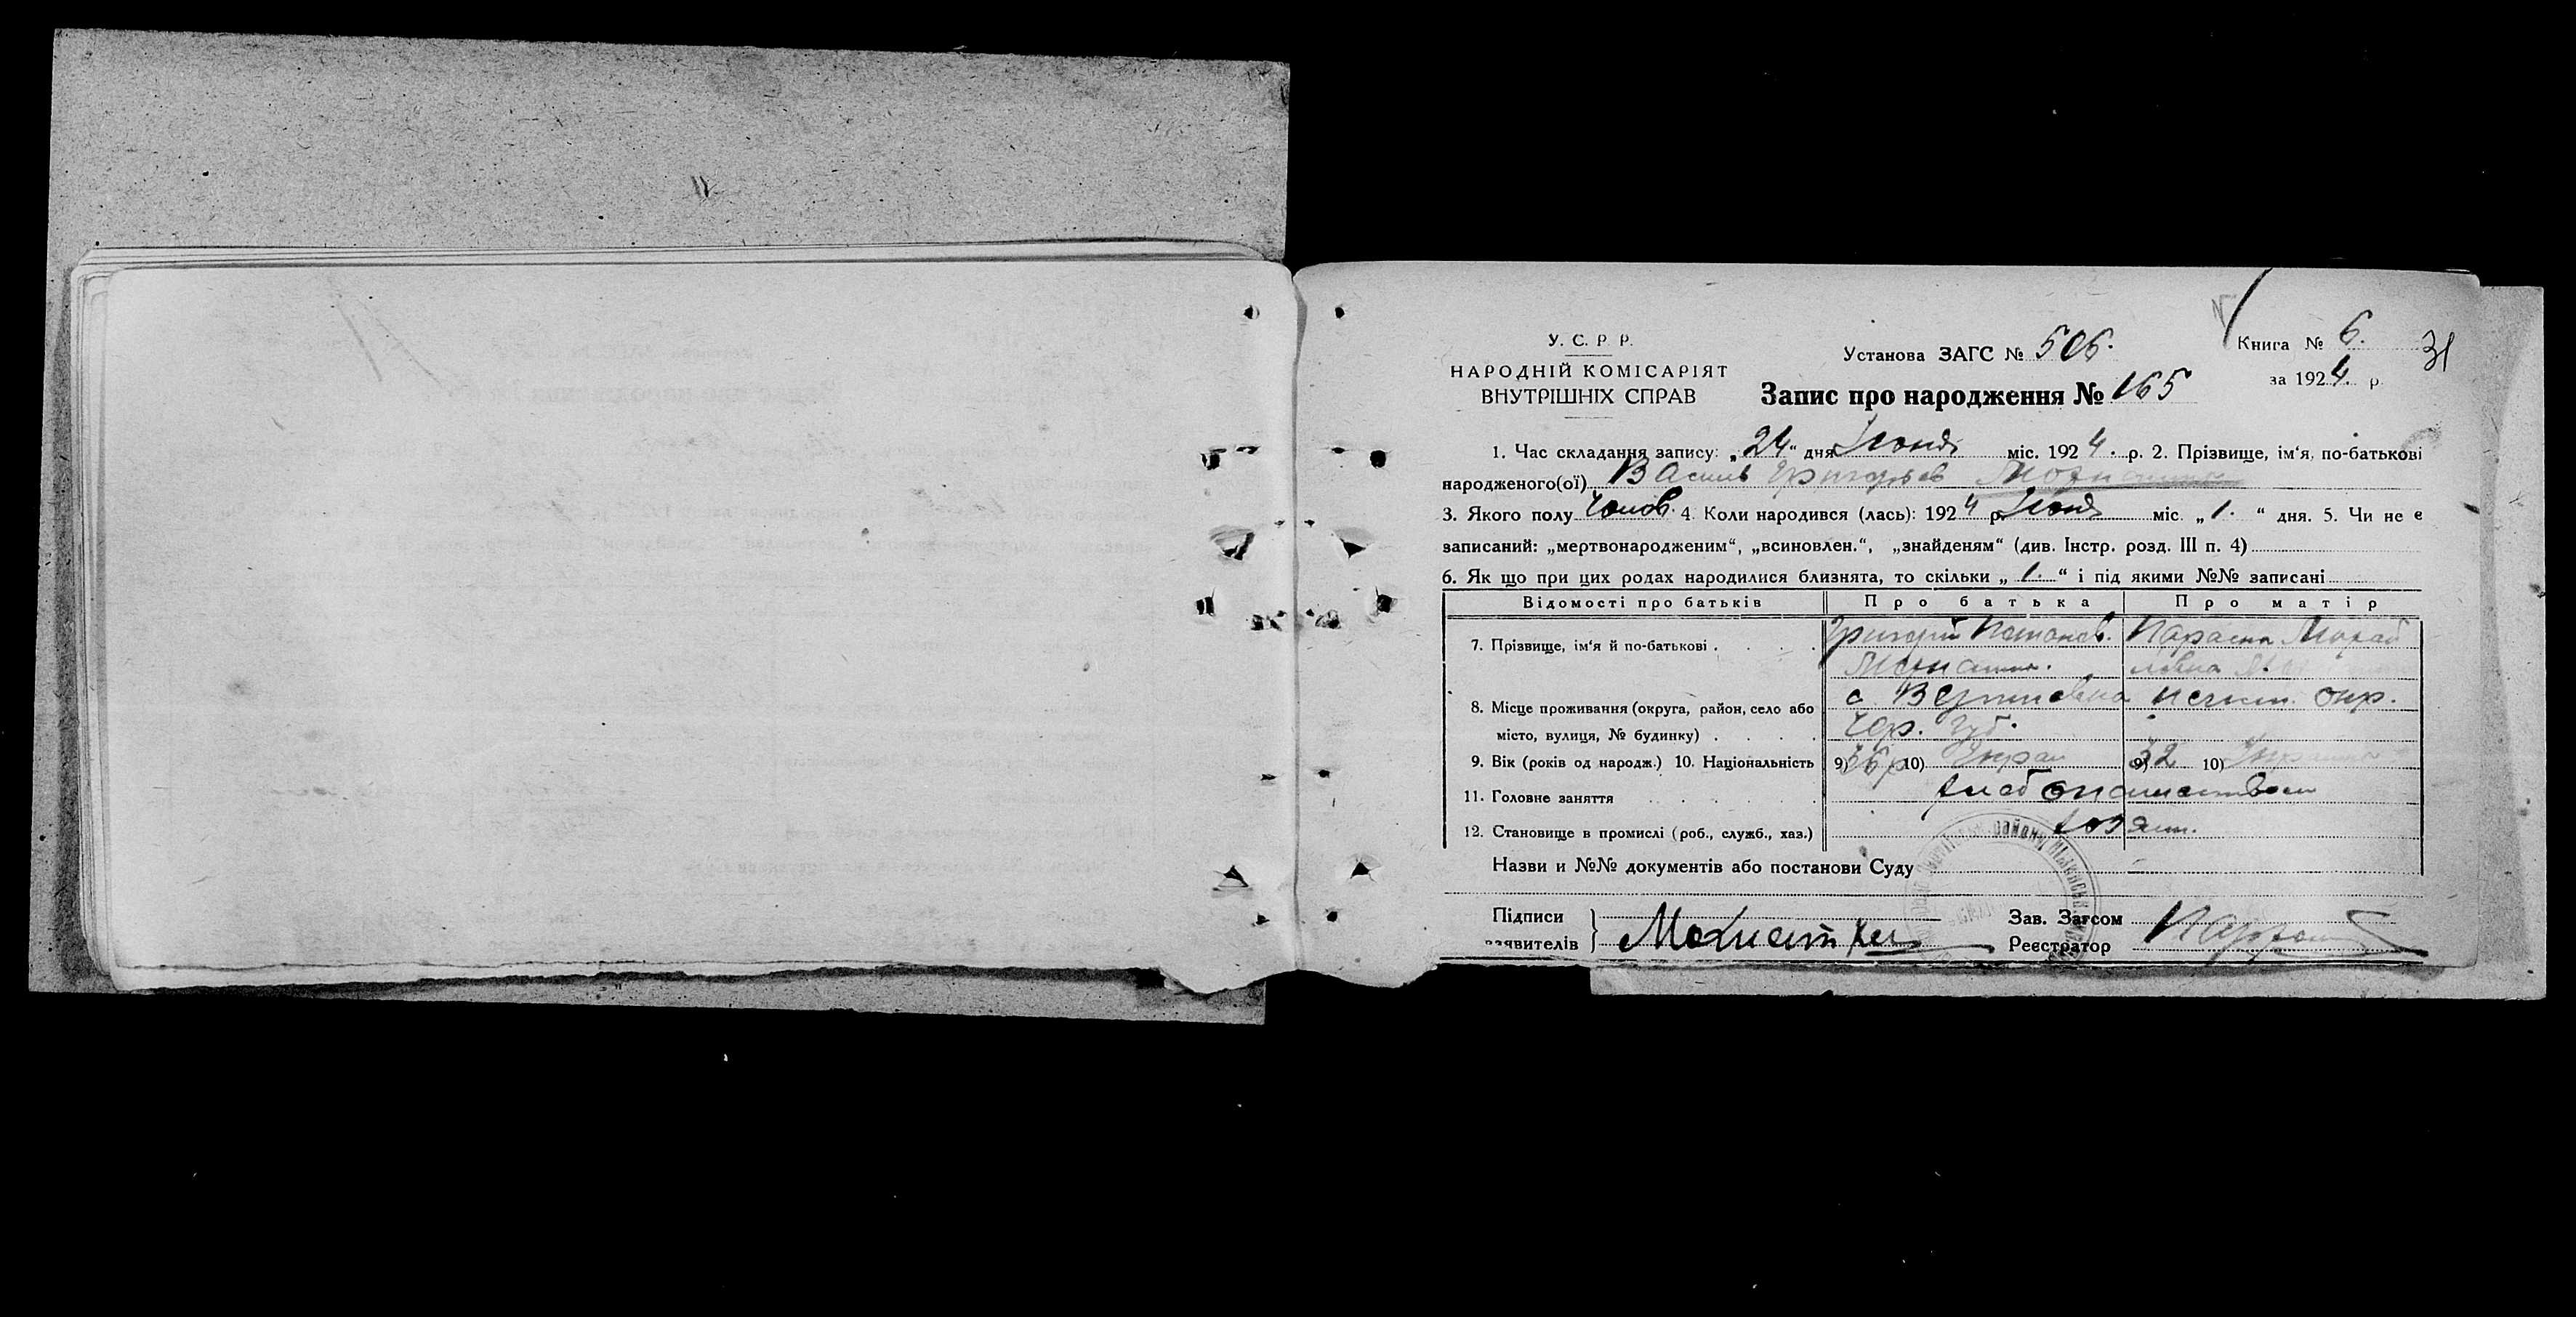 У. С. Р. Р.
НАРОДНІЙ КОМІСАРІЯТ
ВНУТРІШНІХ СПРАВ
Установа ЗАГС № 506.
Книга № 6. 31
за 1924. р.
Запис про народження № 165
1. Час складання запису: „24“ дня Іюня міс. 1924. р. 2. Прізвище, ім'я, по-батькові
народженого(ої) Василь Григорьев
3. Якого полу Чолов. 4. Коли народився (лась): 1924 р. Іюня міс. „1.“ дня. 5. Чи не є
записаний: „мертвонародженим“, „всиновлен.“, „знайденям“ (див. Інстр. розд. III п. 4)
6. Як що при цих родах народилися близнята, то скільки „1.“ і під якими №№ записані
Відомості про батьків Про батька Про матір
7. Прізвище, ім'я й по-батькові . . . . Григорій Параска Михай
ловна
8. Місце проживання (округа, район, село або с. Вертиевка Нежин. окр.
місто, вулиця, № будинку) . . . . Чер. Губ.
9. Вік (років од народж.) 10. Національність 9) 36 р 10) Украи 9) 32 10)
11. Головне заняття . . . . . хлебопашеством
12. Становище в промислі (роб., служб., хаз.) хозяин.
Назви и №№ документів або постанови Суду
Підписи
заявителів
Зав. Загсом
Реєстратор